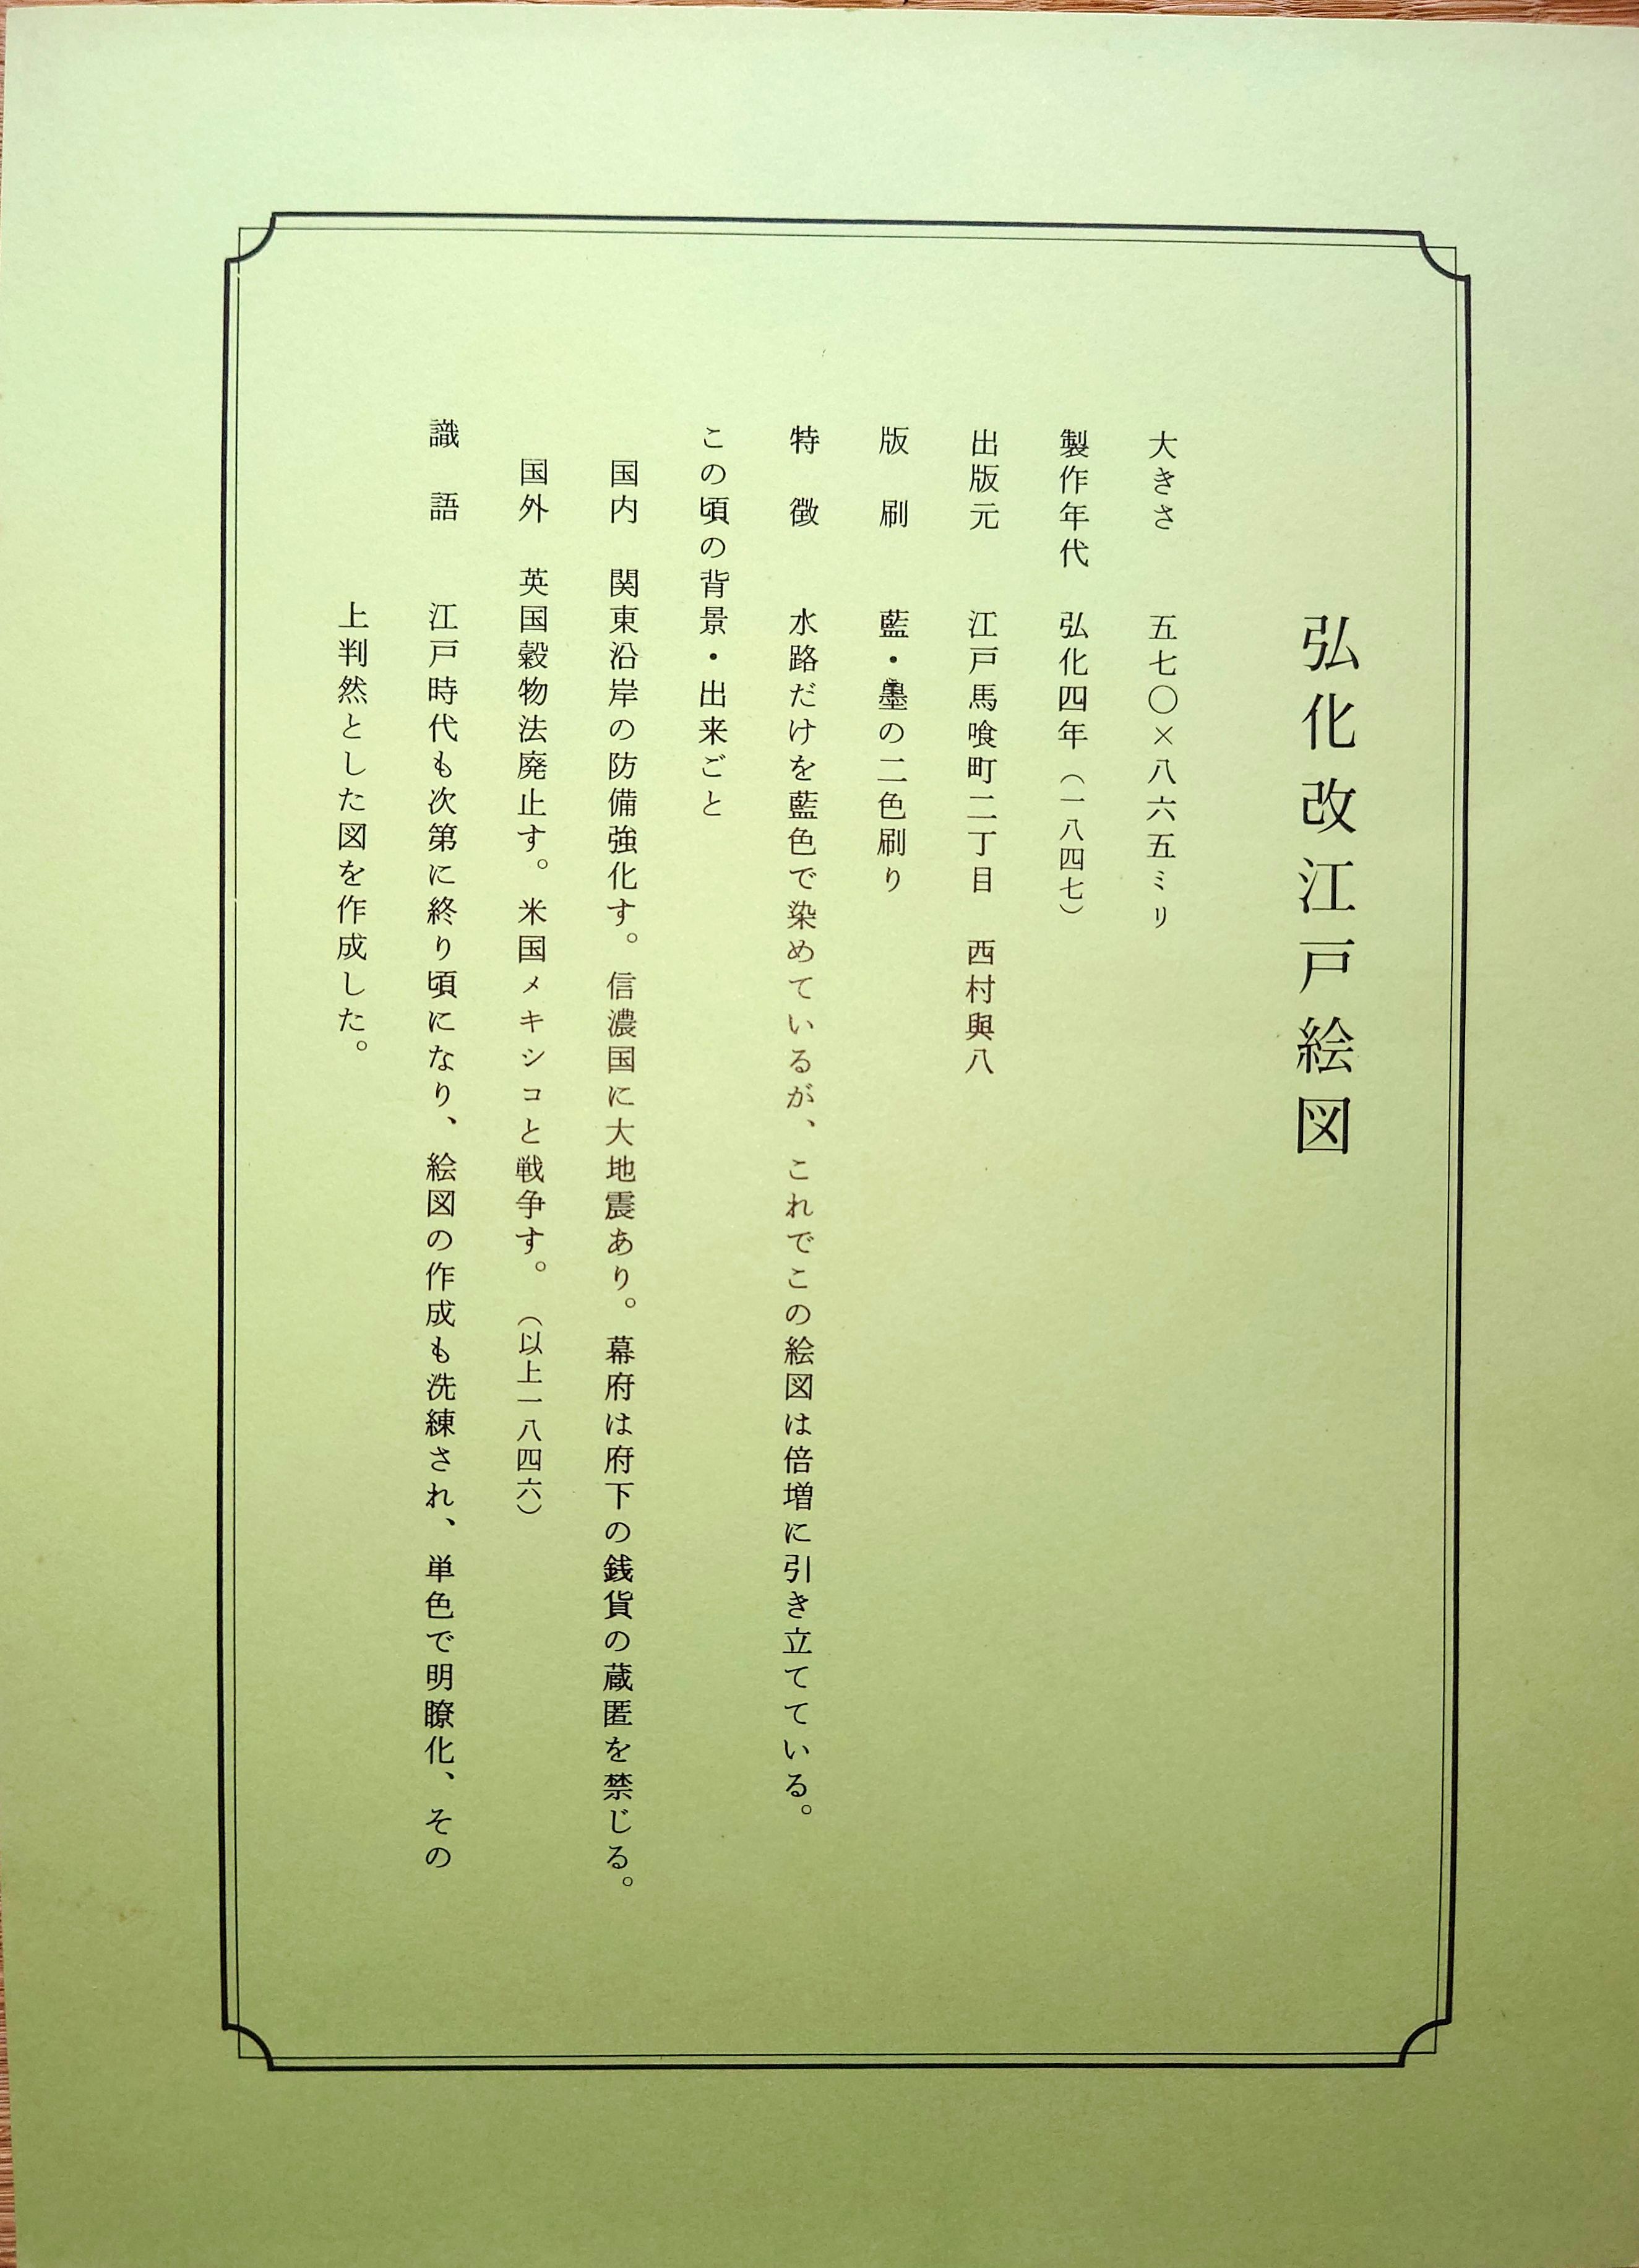 弘化改江戸絵図
大きさ　五七〇×八六五ミリ
製作年代　弘化四年（一八四七）
出版元　江戸馬喰町二丁目　西村與八
版　刷　藍・墨の二色刷り
特　徴　水路だけを藍色で染めているが、これでこの絵図は倍増に引き立てている。
この頃の背景・出来ごと
国内　関東沿岸の防備強化す。信濃国に大地震あり。幕府は府下の銭貨の蔵匿を禁じる。
国外　英国穀物法廃止す。米国メキシコと戦争す。（以上一八四六）
識　語　江戸時代も次第に終り頃になり、絵図の作成も洗練され、単色で明瞭化、その
上判然とした図を作成した。